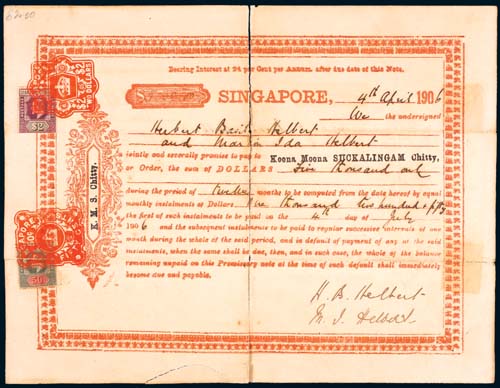 Bearing Interest at 24 per Cent per Annum, after due date of this Note.
SINGAPORE, 4th April 1906
We the undersigned
Herbert Helbert
and Ida Helbert
jointly and severally promise to pay to Keena Moona SUOKALINGAM Chitty,
or Order, the sum of DOLLARS thousand only
during the period of twelve months to be computed from the date hereof by equal
monthly instalments of Dollars thousand hundred
the first of such instalments to be paid on the 4th day of July
1906 and the subsequent instalments to be paid to regular successive intervals of one
month during the whole of the said period, and in default of payment of any of the said
instalments, when the same shall be due, then, and in such case, the whole of the balance
remaining unpaid on this Promissory note at the time of such default shall immediately
become due and payable.
H. B. Helbert
K. M. S. Chitty.
$2
TWO DOLLARS
$2